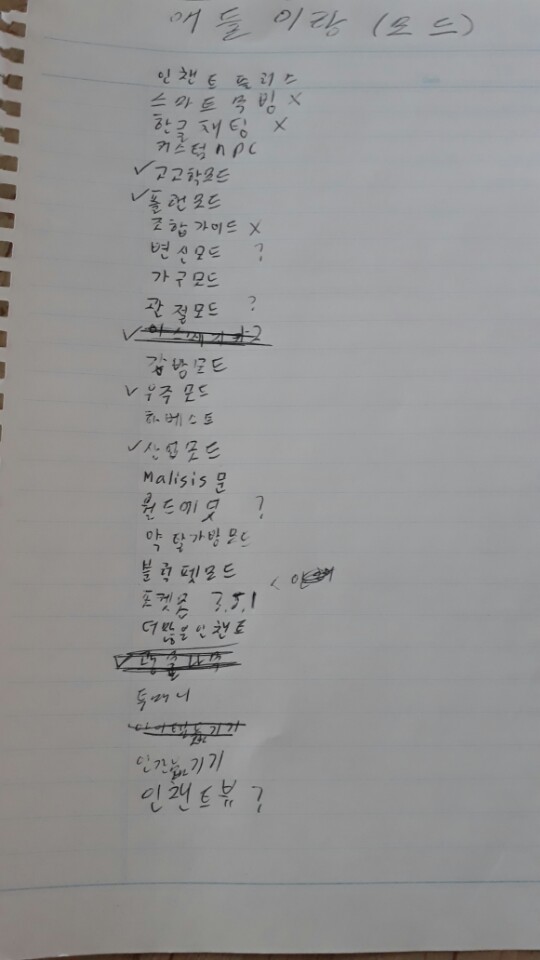 애들이랑 (모드)
인챈트 플러스
스마트 무빙 X
한글 채팅 X
커스텀 NPC
✓ 고고학모드
✓ 폴런모드
조합가이드 X
변신모드 ?
가구모드
관절모드 ?
✓
가방모드
✓ 우주모드
하베스트
✓ 산업모드
Malisis 문
월드에딧 ?
약탈가방모드
블럭펫모드
포켓몬 3.5.1 <
더많은인챈트
✓
투매니
인간높기기
인챈트뷰 ?